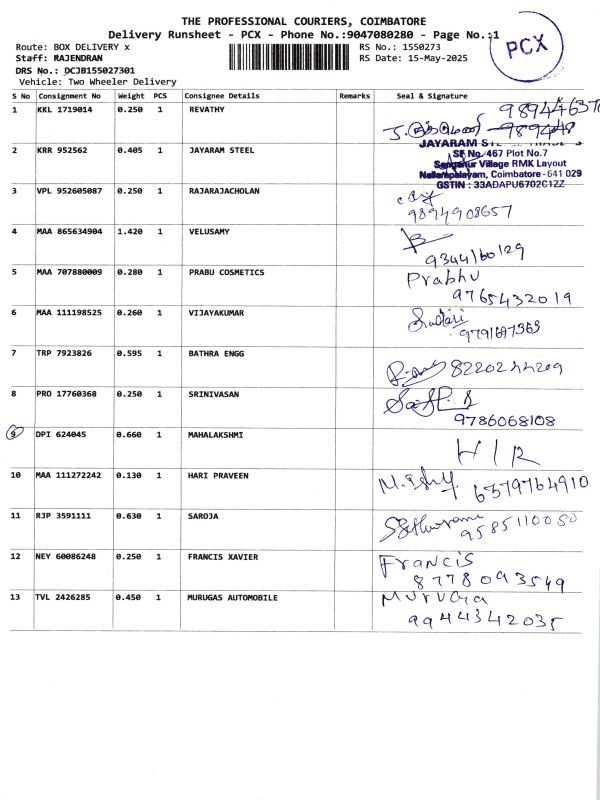 THE PROFESSIONAL COURIERS, COIMBATORE
Delivery Runsheet - PCX - Phone No.:9047080280 - Page No.:1
PCX
Route: BOX DELIVERY x
RS No.: 1550273
Staff: RAJENDRAN
RS Date: 15-May-2025
DRS No.: DCJB155027301
Vehicle: Two Wheeler Delivery
S No Consignment No Weight PCS Consignee Details Remarks Seal & Signature
1 KKL 1719014 0.250 1 REVATHY
2 KRR 952562 0.405 1 JAYARAM STEEL
JAYARAM
SF No/467 Plot No.7
Sanganur Village RMK Layout
Nallampalayam, Coimbatore - 641 029
GSTIN : 33ADAPU6702C1ZZ
3 VPL 952605087 0.250 1 RAJARAJACHOLAN
9894908657
4 MAA 865634904 1.420 1 VELUSAMY
9344160129
5 MAA 707880009 0.280 1 PRABU COSMETICS Prabhu
9765432019
6 MAA 111198525 0.260 1 VIJAYAKUMAR
7 TRP 7923826 0.595 1 BATHRA ENGG
8220244209
8 PRO 17760368 0.250 1 SRINIVASAN
9786068108
9 DPI 624045 0.660 1 MAHALAKSHMI
H I R
10 MAA 111272242 0.130 1 HARI PRAVEEN
6379764910
11 RJP 3591111 0.630 1 SAROJA
9585110050
12 NEY 60086248 0.250 1 FRANCIS XAVIER Francis
8778093549
13 TVL 2426285 0.450 1 MURUGAS AUTOMOBILE Muruga
9944342035